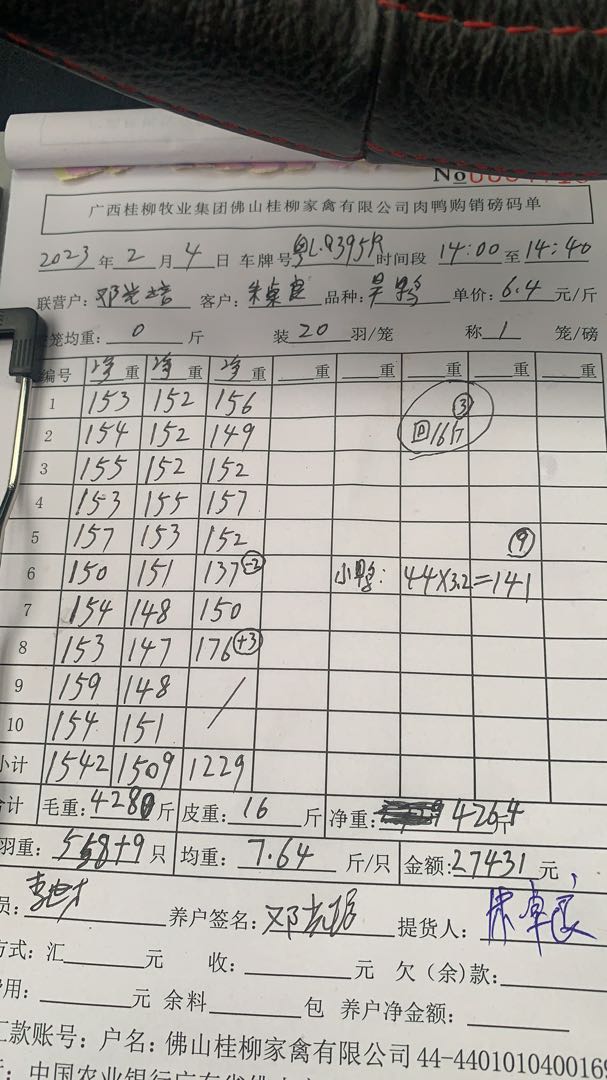 No
广西桂柳牧业集团佛山桂柳家禽有限公司肉鸭购销磅码单
2023 年 2 月 4 日 车牌号 粤L·Q395R 时间段 14:00 至 14:40
联营户: 客户: 品种: 单价: 6.4 元/斤
笼均重: 0 斤 装 20 羽/笼 称 1 笼/磅
编号 净重 净重 净重 重 重 重 重
1 153 152 156 ③
2 154 152 149 回16斤
3 155 152 152
4 153 155 157
5 157 153 152 ⑨
6 150 151 137 -2 小鸭: 44×3.2=141
7 154 148 150
8 153 147 176 +3
9 159 148 /
10 154 151
小计 1542 1509 1229
合计 毛重: 4280 斤 皮重: 16 斤 净重: 4264 斤
羽重: 558+9 只 均重: 7.64 斤/只 金额: 27431 元
员: 养户签名: 提货人:
方式: 汇 元 收: 元 欠(余)款:
费用: 元 余料 包 养户净金额:
汇款账号: 户名: 佛山桂柳家禽有限公司 44-4401010400169
中国农业银行广东省佛山